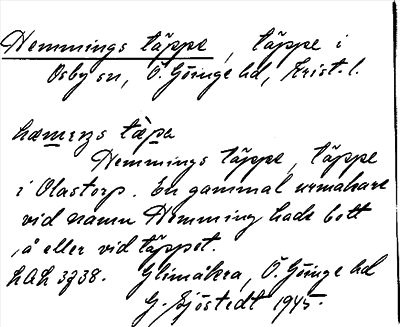 Hemmings täppe, täppe i
Osby sn, Ö. Göinge hd, Krist. l.
Hemmings täppe, täppe
i Olastorp. En gammal urmakare
vid namn Hemming hade bott
på eller vid täppet.
LAL 3738. Glimåkra, Ö. Göinge hd
G. Sjöstedt 1945.